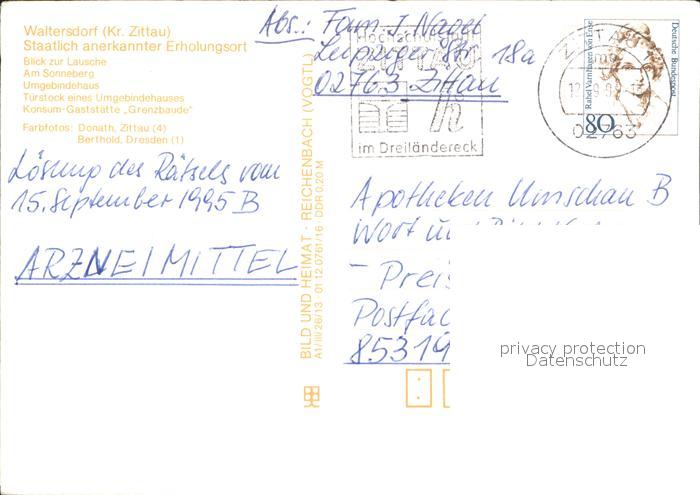 Waltersdorf (Kr. Zittau)
Staatlich anerkannter Erholungsort
Blick zur Lausche
Am Sonneberg
Umgebindehaus
Türstock eines Umgebindehauses
Konsum-Gaststätte „Grenzbaude"
Farbfotos: Donath, Zittau (4)
Berthold, Dresden (1)
Lösung des Rätsels vom
15. September 1995 B
ARZNEIMITTEL
BILD UND HEIMAT · REICHENBACH (VOGTL)
A1/III/26/13 01 12 0761/16 DDR 0,20 M
Abs.: Fam. J. Nagel
Leipziger Str. 18a
02763 Zittau
Hochschulstadt
ZITTAU
im Dreiländereck
ZITTAU
02763
Rahel Varnhagen von Ense
Deutsche Bundespost
80
Apotheken Umschau B
Wort u
- Preis
Postfac
85319
privacy protection
Datenschutz